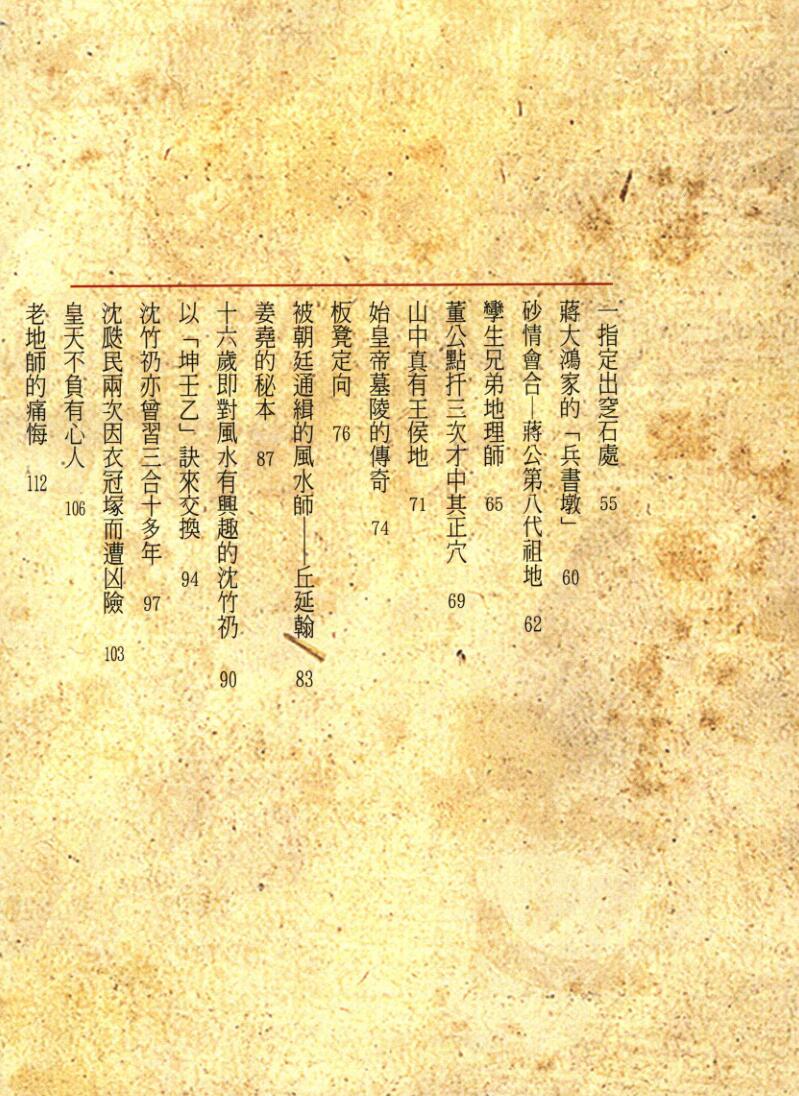 一指定出窆石處 55
蔣大鴻家的「兵書墩」 60
砂情會合—蔣公第八代祖地 62
孿生兄弟地理師 65
董公點扦三次才中其正穴 69
山中真有王侯地 71
始皇帝墓陵的傳奇 74
板凳定向 76
被朝廷通緝的風水師——丘延翰 83
姜堯的秘本 87
十六歲即對風水有興趣的沈竹礽 90
以「坤壬乙」訣來交換 94
沈竹礽亦曾習三合十多年 97
沈瓞民兩次因衣冠塚而遭凶險 103
皇天不負有心人 106
老地師的痛悔 112